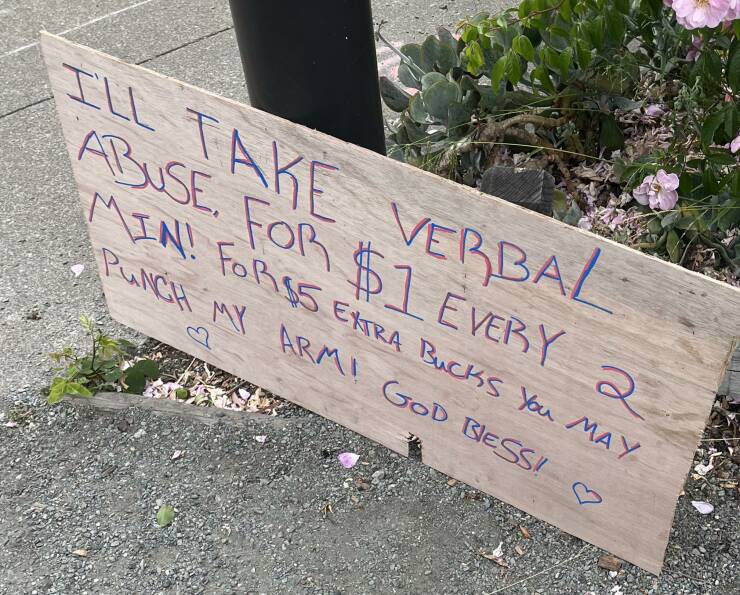 I'LL TAKE VERBAL
ABUSE, FOR $1 EVERY 2
MIN! FOR $5 EXTRA BUCKS YOU MAY
PUNCH MY ARM! GOD BLESS!